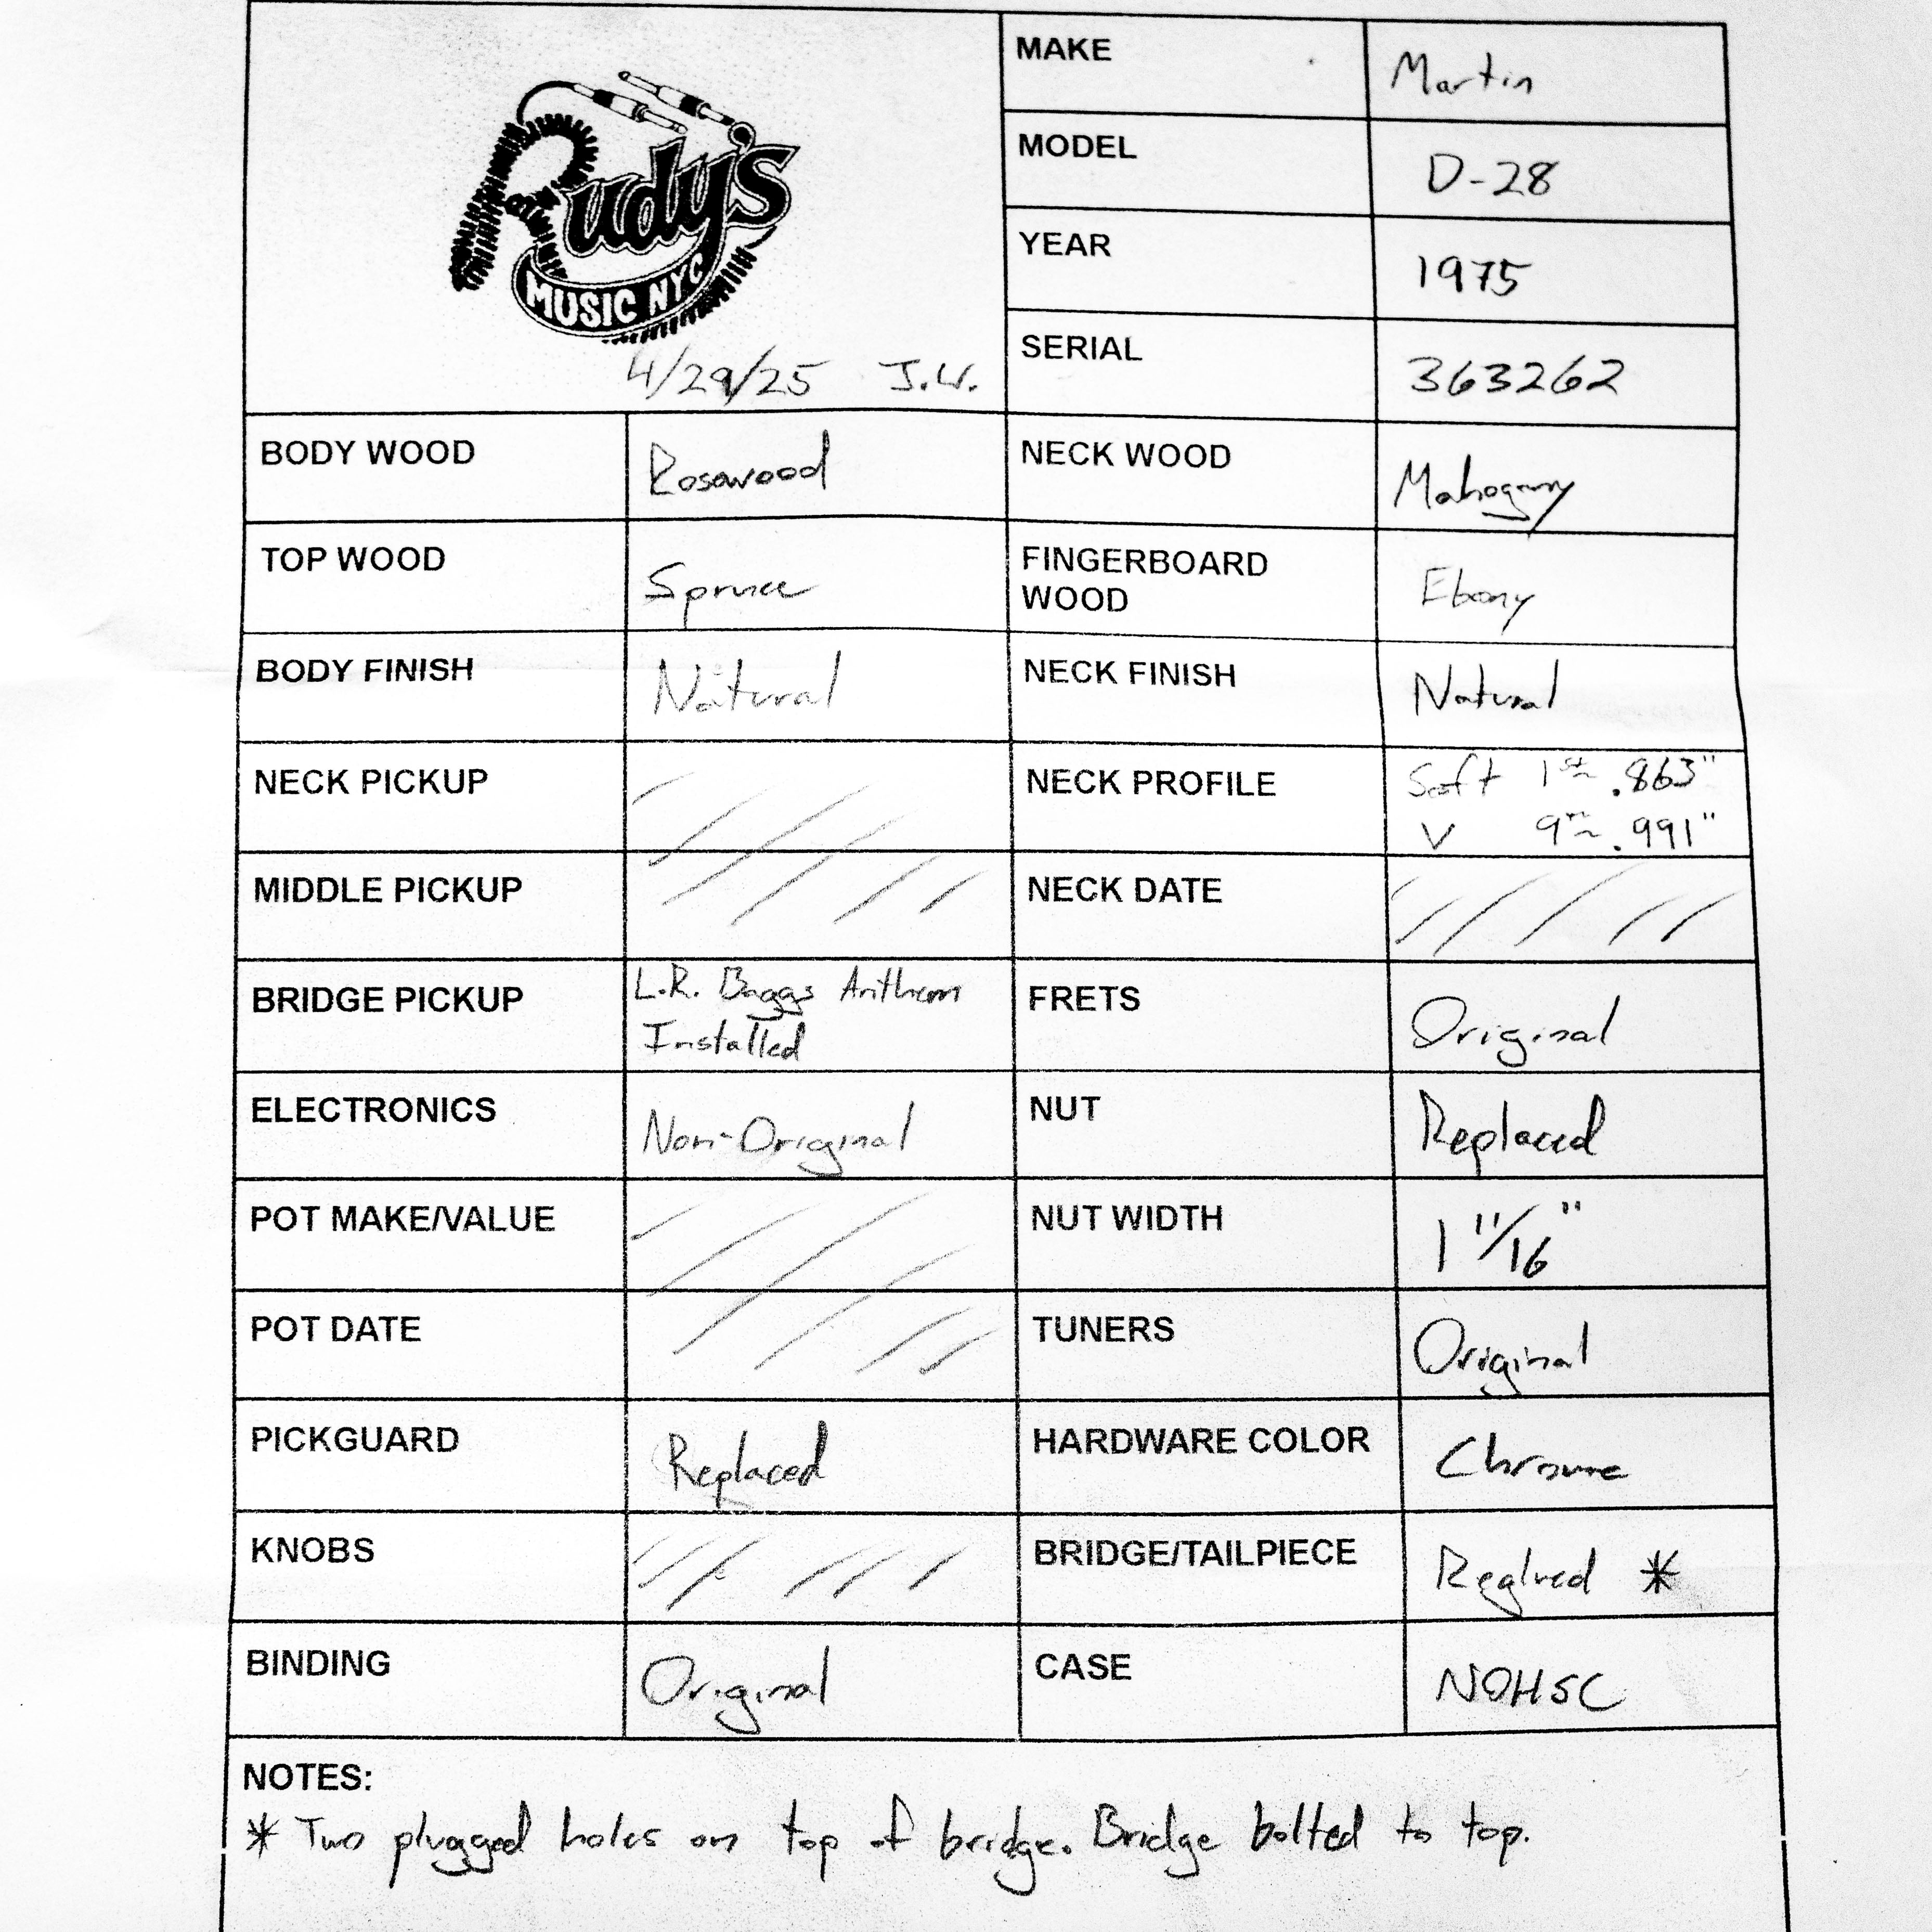 Rudy's
MUSIC NYC
4/29/25 J.W.
MAKE Martin
MODEL D-28
YEAR 1975
SERIAL 363262
BODY WOOD Rosewood
NECK WOOD Mahogany
TOP WOOD Spruce
FINGERBOARD
WOOD Ebony
BODY FINISH Natural
NECK FINISH Natural
NECK PICKUP
NECK PROFILE Soft 1st~ .863"
V 9th~ .991"
MIDDLE PICKUP
NECK DATE
BRIDGE PICKUP L.R. Baggs Anthem
Installed
FRETS Original
ELECTRONICS Non-Original
NUT Replaced
POT MAKE/VALUE
NUT WIDTH 1 11/16"
POT DATE
TUNERS Original
PICKGUARD Replaced
HARDWARE COLOR Chrome
KNOBS
BRIDGE/TAILPIECE Reglued *
BINDING Original
CASE NOHSC
NOTES:
* Two plugged holes on top of bridge. Bridge bolted to top.